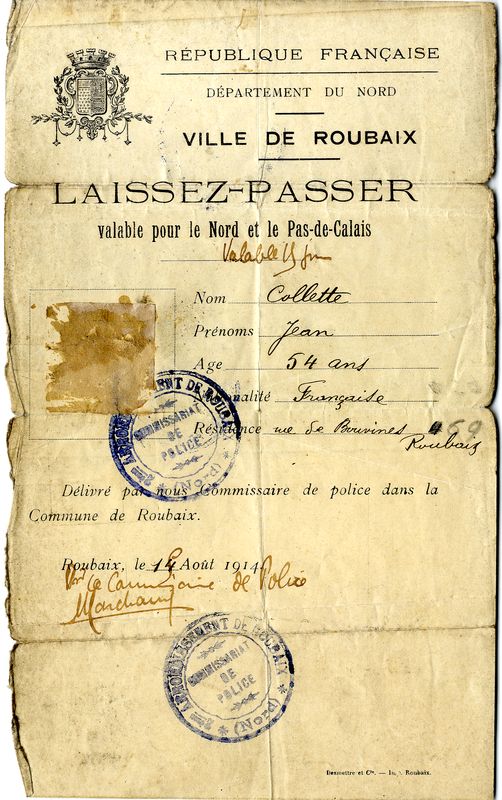 RÉPUBLIQUE FRANÇAISE
DÉPARTEMENT DU NORD
VILLE DE ROUBAIX
LAISSEZ-PASSER
valable pour le Nord et le Pas-de-Calais
Valable 15 jrs
Nom Collette
Prénoms Jean
Age 54 ans
Nationalité Française
Résidence rue de Bouvines 69
Roubaix
2ème ARRONDISSEMENT DE ROUBAIX (Nord)
COMMISSARIAT
DE
POLICE
Délivré par nous Commissaire de police dans la
Commune de Roubaix.
Roubaix, le 14 Août 1914
Le Commissaire de Police
2ème ARRONDISSEMENT DE ROUBAIX (Nord)
COMMISSARIAT
DE
POLICE
Desmettre et Cie. — Imp. Roubaix.